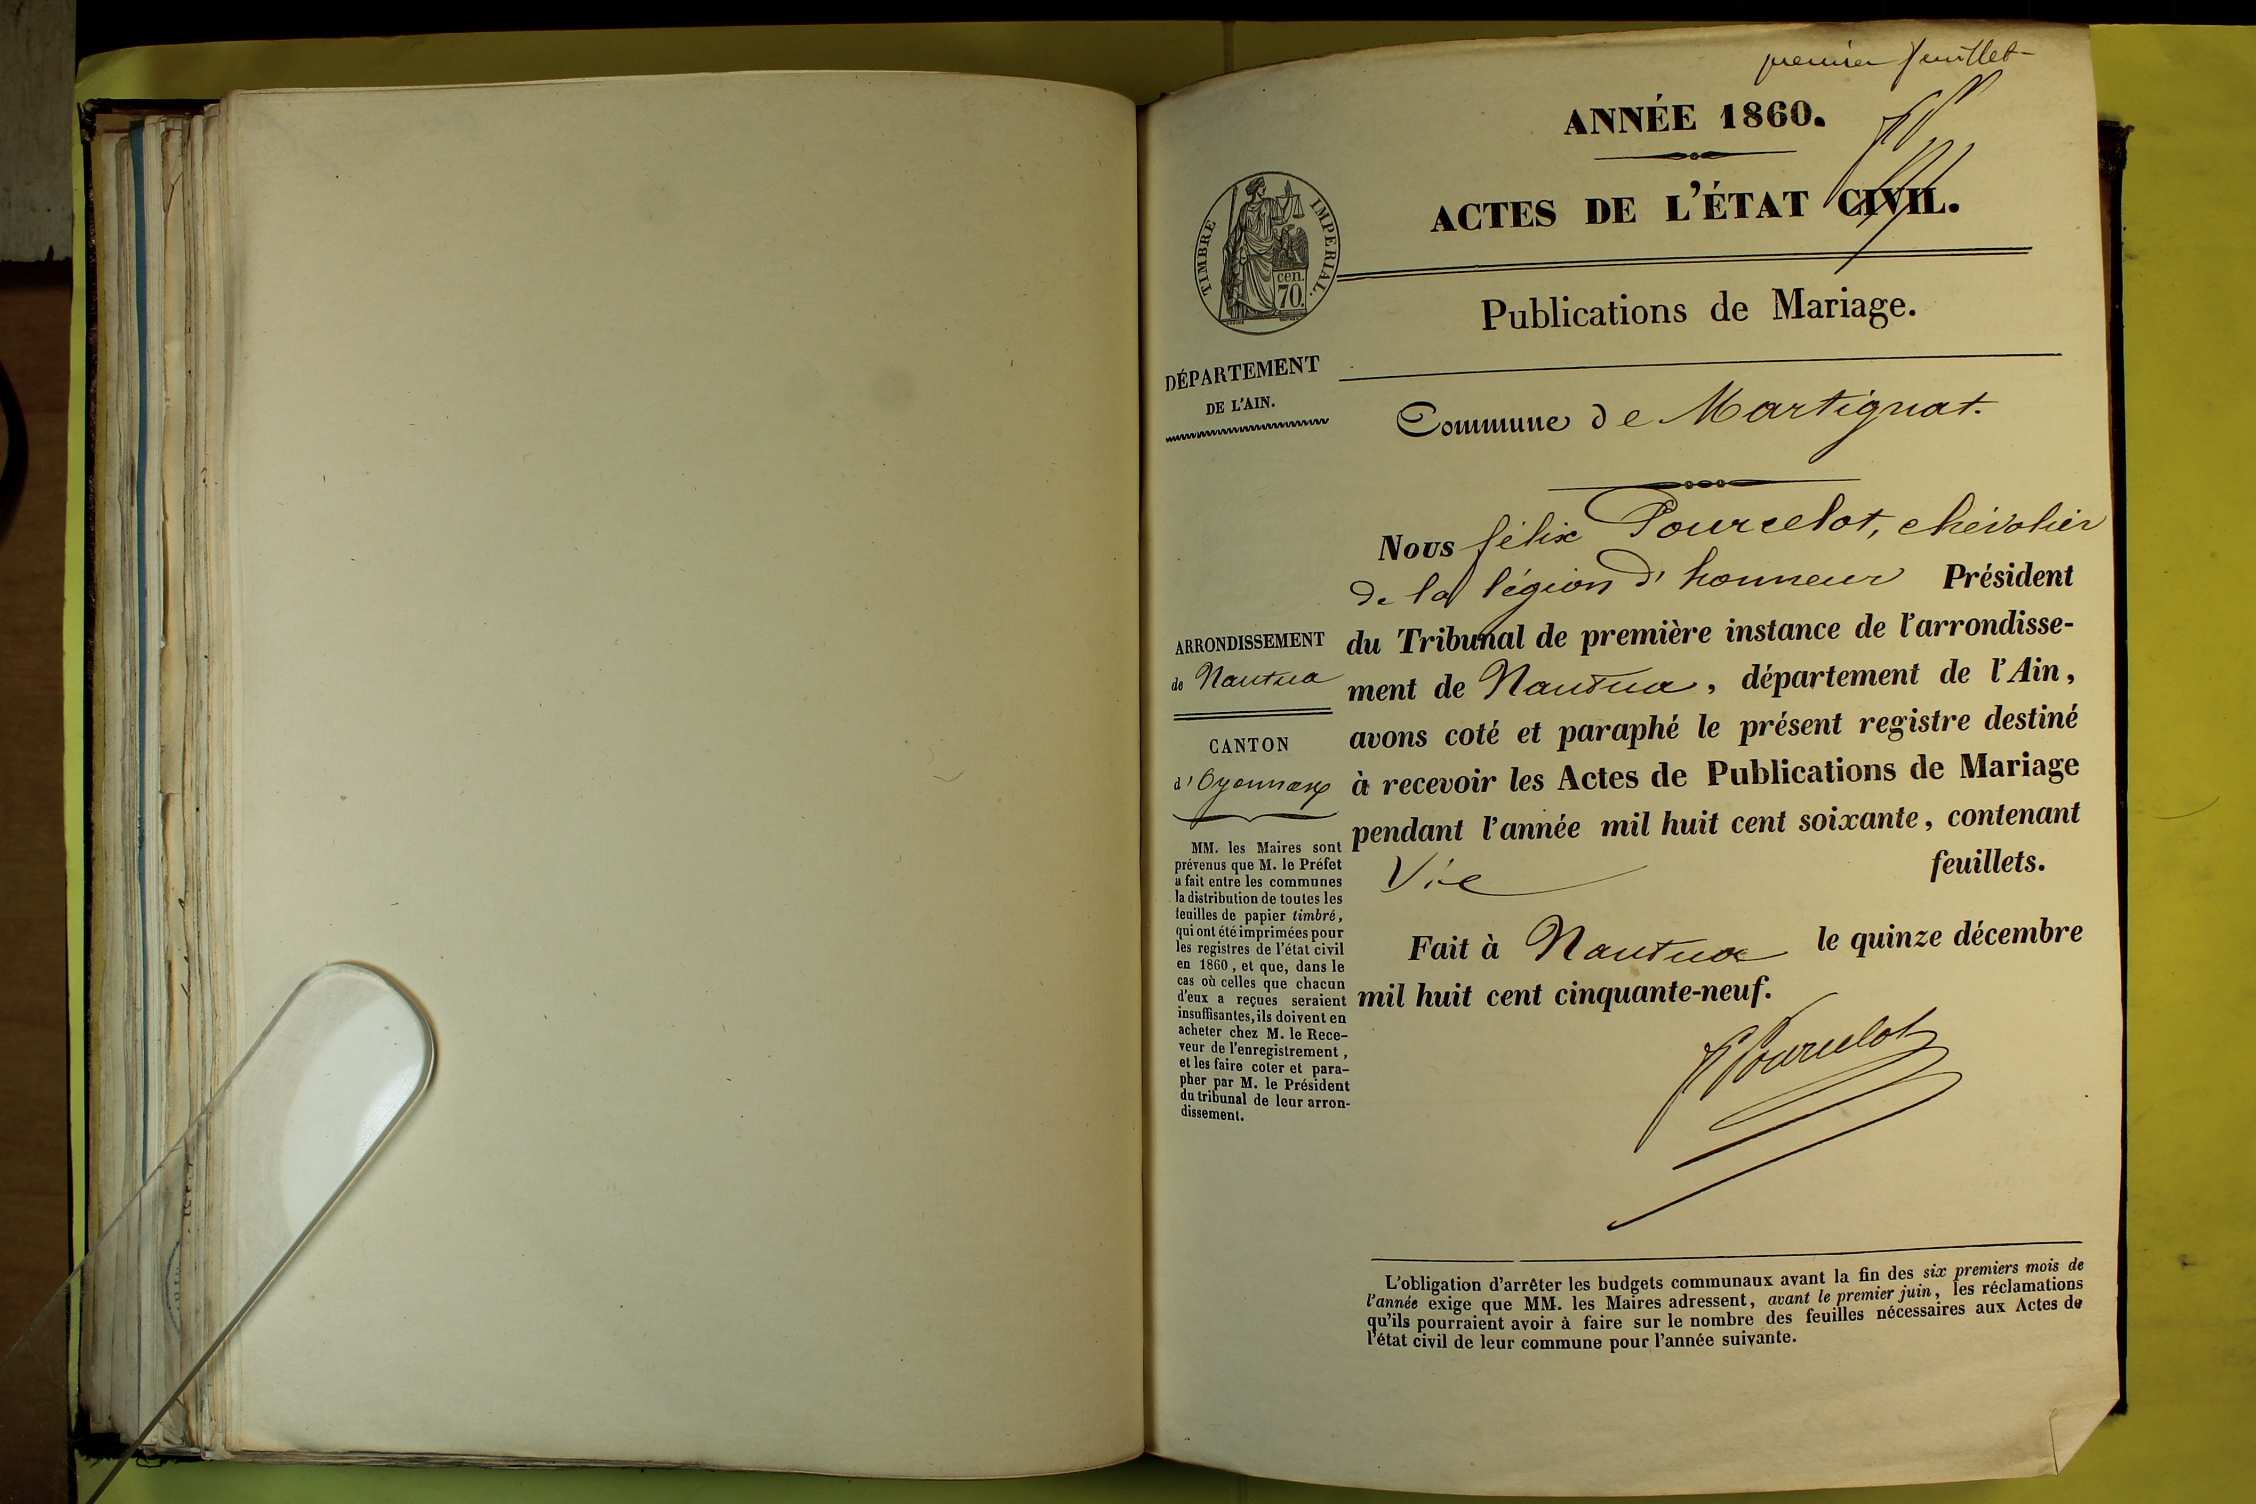 premier feuillet
ANNÉE 1860.
ACTES DE L'ÉTAT CIVIL.
TIMBRE IMPERIAL.
cen.
70.
Publications de Mariage.
DÉPARTEMENT
DE L'AIN.
Commune de Martignat.
Nous félix Pourcelot, chévalier
de la légion d'honneur Président
du Tribunal de première instance de l'arrondisse-
ment de Nantua, département de l'Ain,
avons coté et paraphé le présent registre destiné
à recevoir les Actes de Publications de Mariage
pendant l'année mil huit cent soixante, contenant
feuillets.
Fait à Nantua le quinze décembre
mil huit cent cinquante-neuf.
F Pourcelot
ARRONDISSEMENT
de Nantua
CANTON
d'Oyonnax
MM. les Maires sont
prévenus que M. le Préfet
a fait entre les communes
la distribution de toutes les
feuilles de papier timbré,
qui ont été imprimées pour
les registres de l'état civil
en 1860, et que, dans le
cas où celles que chacun
d'eux a reçues seraient
insuffisantes, ils doivent en
acheter chez M. le Rece-
veur de l'enregistrement,
et les faire coter et para-
pher par M. le Président
du tribunal de leur arron-
dissement.
L'obligation d'arrêter les budgets communaux avant la fin des six premiers mois de
l'année exige que MM. les Maires adressent, avant le premier juin, les réclamations
qu'ils pourraient avoir à faire sur le nombre des feuilles nécessaires aux Actes de
l'état civil de leur commune pour l'année suivante.